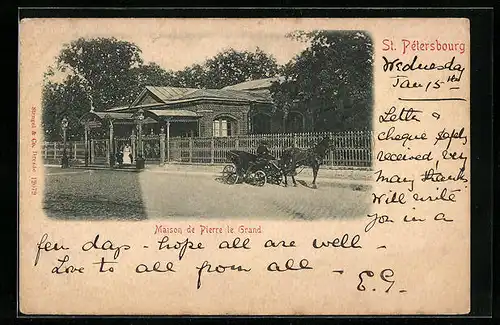 St. Pétersbourg
Wednesday
Jan 15th
Letter &
cheque safely
received very
many thanks
Will write
you in a
few days - hope all are well -
Love to all from all -
E.G.
Maison de Pierre le Grand
Stengel & Co. Dresde 12879